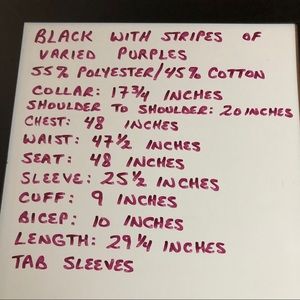 BLACK WITH STRIPES OF
VARIED PURPLES
55% POLYESTER/45% COTTON
COLLAR: 17 3/4 INCHES
SHOULDER TO SHOULDER: 20 INCHES
CHEST: 48 INCHES
WAIST: 47 1/2 INCHES
SEAT: 48 INCHES
SLEEVE: 25 1/2 INCHES
CUFF: 9 INCHES
BICEP: 10 INCHES
LENGTH: 29 1/4 INCHES
TAB SLEEVES